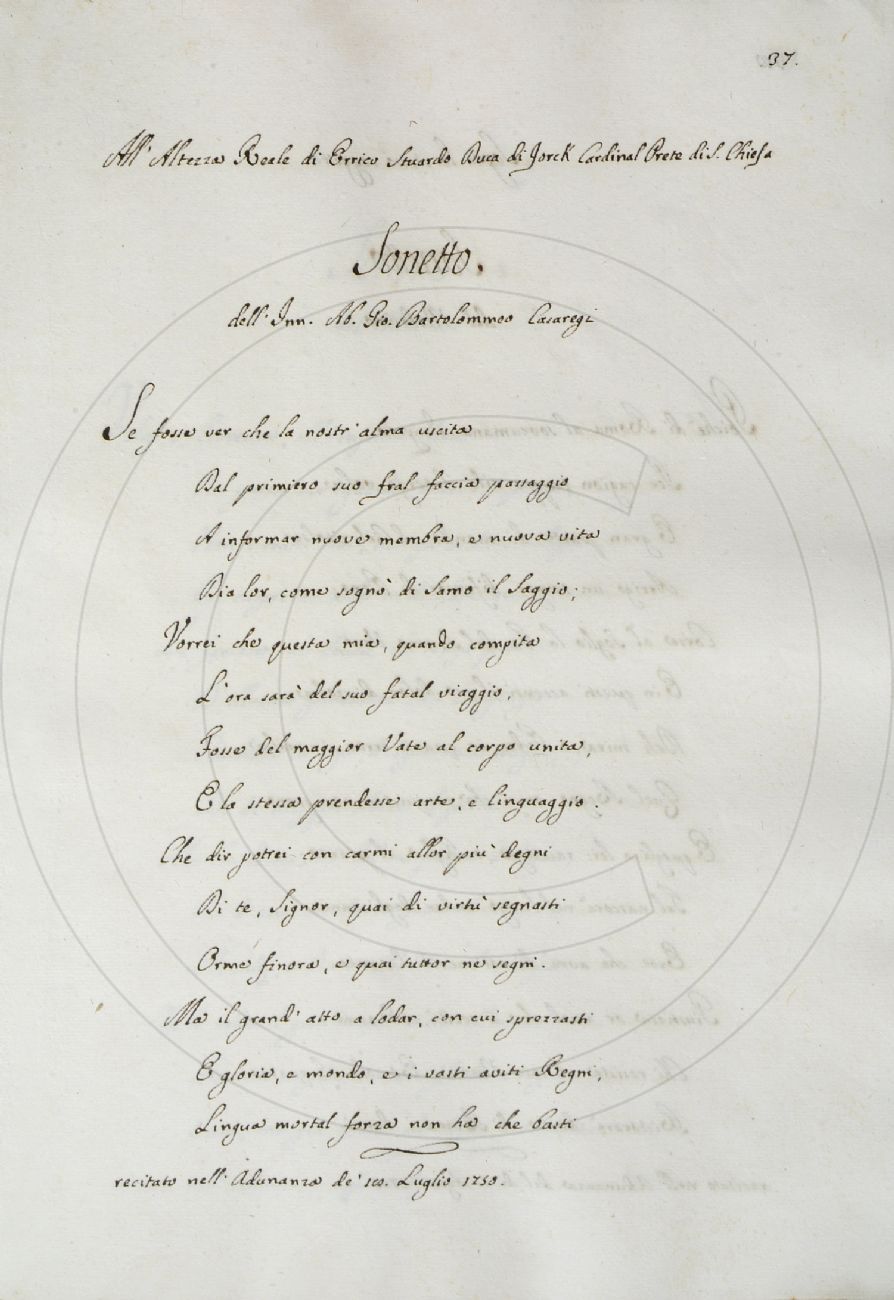 37.
All' Altezza Reale di Errico Stuardo Duca di Jorck Cardinal Prete di S. Chiesa
Sonetto.
dell' Inn. Ab. Gio. Bartolommeo Casaregi
Se fosse ver che la nostr' alma uscita
Dal primiero suo fral faccia passaggio
A informar nuove membra, e nuova vita
Dia lor, come sognò di Samo il Saggio;
Vorrei che questa mia, quando compita
L'ora sarà del suo fatal viaggio,
Fosse del maggior Vate al corpo unita,
E la stessa prendesse arte, e linguaggio.
Che dir potrei con carmi allor più degni
Di te, Signor, quai di virtù segnasti
Orme finora, e quai tuttor ne segni.
Ma il grand' atto a lodar, con cui sprezzasti
E gloria, e mondo, e i vasti aviti Regni,
Lingua mortal forza non ha che basti
recitato nell' Adunanza de' Luglio 1750.